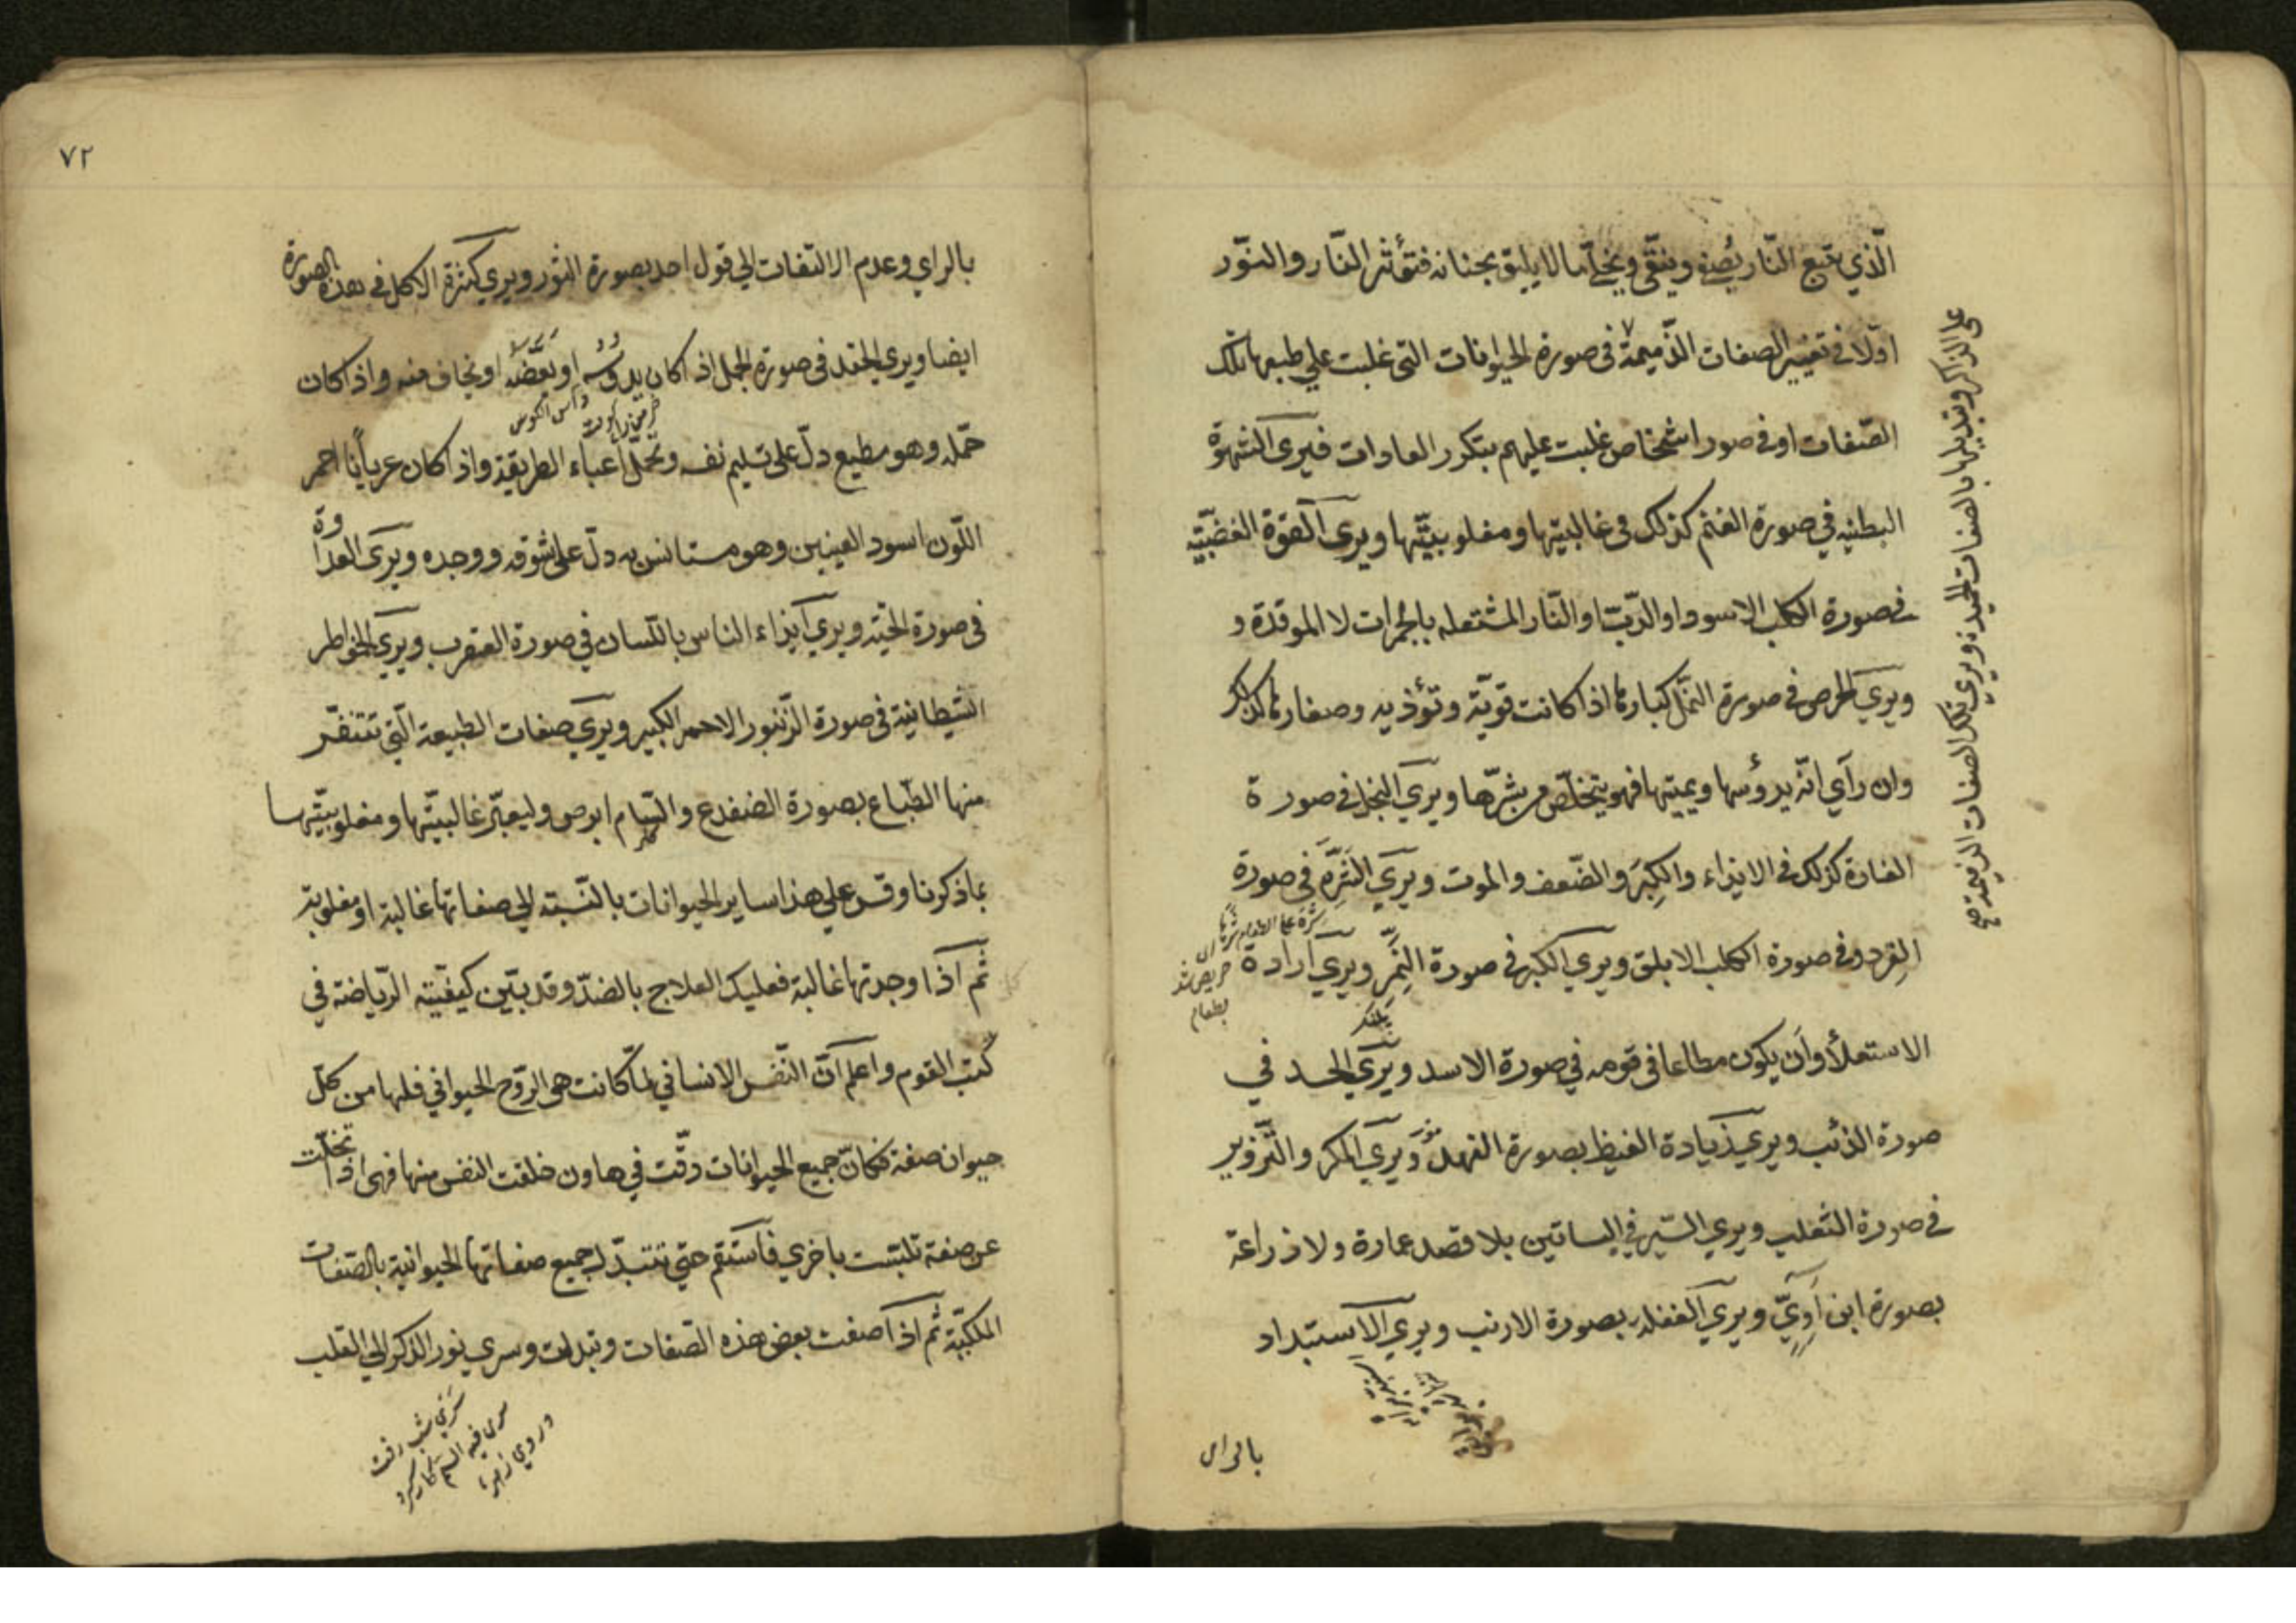 الّذي يتبع النّار يُصفو وينقّى ويخلّ ما لا يليق بجنانه فتؤثر النّار والنّور
اوّلا في تغيير الصفات الذّميمة في صورة الحيوانات التي غلبت علي طبعها تلك
الصّفات او في صور اشخاص غلبت عليهم بتكرر العادات فيرى الشهوة
البطنيه في صورة الغنم كذلك في غالبيتها ومغلوبيّتها ويرى القوّة الغضبيّة
في صورة الكلب الاسود او الدّبّ او النّار المشتعله بالجُمرات لا الموقدة و
ويري الحرص في صورة النمّل كبارها اذا كانت قويّة وتؤذيه وصغارها كذلك
وان رآي انّه يدوسها ويميتها فهو يتخلّص من شرّها ويري البخل في صورة
الفارة كذلك في الايذاء والكِبَر والضّعف والموت ويري الشَرَّه في صورة
القرد وفي صورة الكلب الابلق ويري الكبر في صورة النَّمِر ويري ارادة
الاستعلأ وان يكون مطاعا في قومه في صورة الاسد ويري الحسد في
صورة الذئب ويري زيادة الغيظ بصورة الفهد ويري المكر والتّزوير
في صورة الثعلب ويري السّير في البساتين بلا قصد عمارة ولا زراعة
بصورة ابن آوي ويري الغفلة بصورة الارنب ويري الاستبداد
بالراى
على الذاكر وتبديلها بالصفات الحميدة ويري تلك الصفات الذميمة صح
شَرَهَ على الطعام شرهًا
حريص شد
بطعام
پلنك
٧٢
بالراي وعدم الالتفات الي قول احد بصورة الثور ويري كثرة الاكل في هذه الصورة
ايضا ويري الحقد في صورة الجمل اذ اكان يدوسُه او يَعَضُّه او يخاف منه واذا كان
حمّله وهو مطيع دلّ على تسليم نفسه وتحمّل اعباء الطريقة واذا كان عريانًا احمر
اللّون اسود العينين وهو مستانس به دلّ على شوقه ووجده ويرى العداوة
في صورة الحيّه ويري ايذاء الناس باللّسان في صورة العقرب ويري الخواطر
الشيطانية في صورة الزّنبور الاحمر الكبير ويري صفات الطبيعة الّتي تتنفّر
منها الطّباع بصورة الضفدع والسّام ابرص وليعبّر غالبيّتها ومغلوبيّتها
بما ذكرنا وقس علي هذا ساير الحيوانات بالنّسبته الي صفاتها غالبة او مغلوبة
ثم اذا وجدتها غالبة فعليك العلاج بالضدّ وقد بيّن كيفيّة الرّياضة في
كُتب القوم واعلم انّ النّفس الانساني لمّا كانت هي الرّوح الحيواني فلها من كلّ
حيوان صفة فكانّ جميع الحيوانات دقّت في هاون خلقت النفس منها فهى اذا تخلّت
عن صفة تلبّست باخري فاستقم حتي تتبدّل جميع صفاتها الحيوانية بالصّفات
الملكيّة ثم اذا صفت بعض هذه الصّفات وتبدلت وسري نور الذكر الي القلب
سَرَي شب رفت
سرى فيه السم